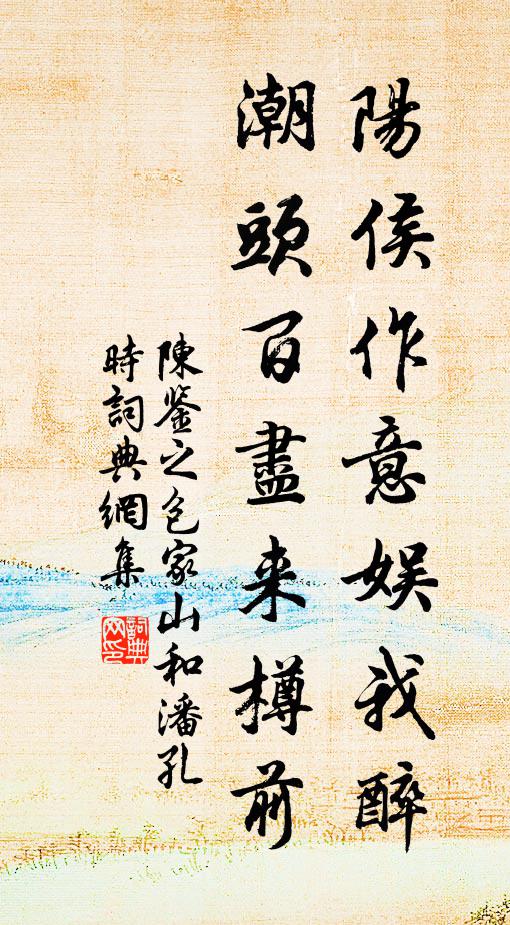 陽侯作意娛我醉
潮頭百盡来樽前
陳鑒之包家山和潘孔
時詞典網集
詞典网印